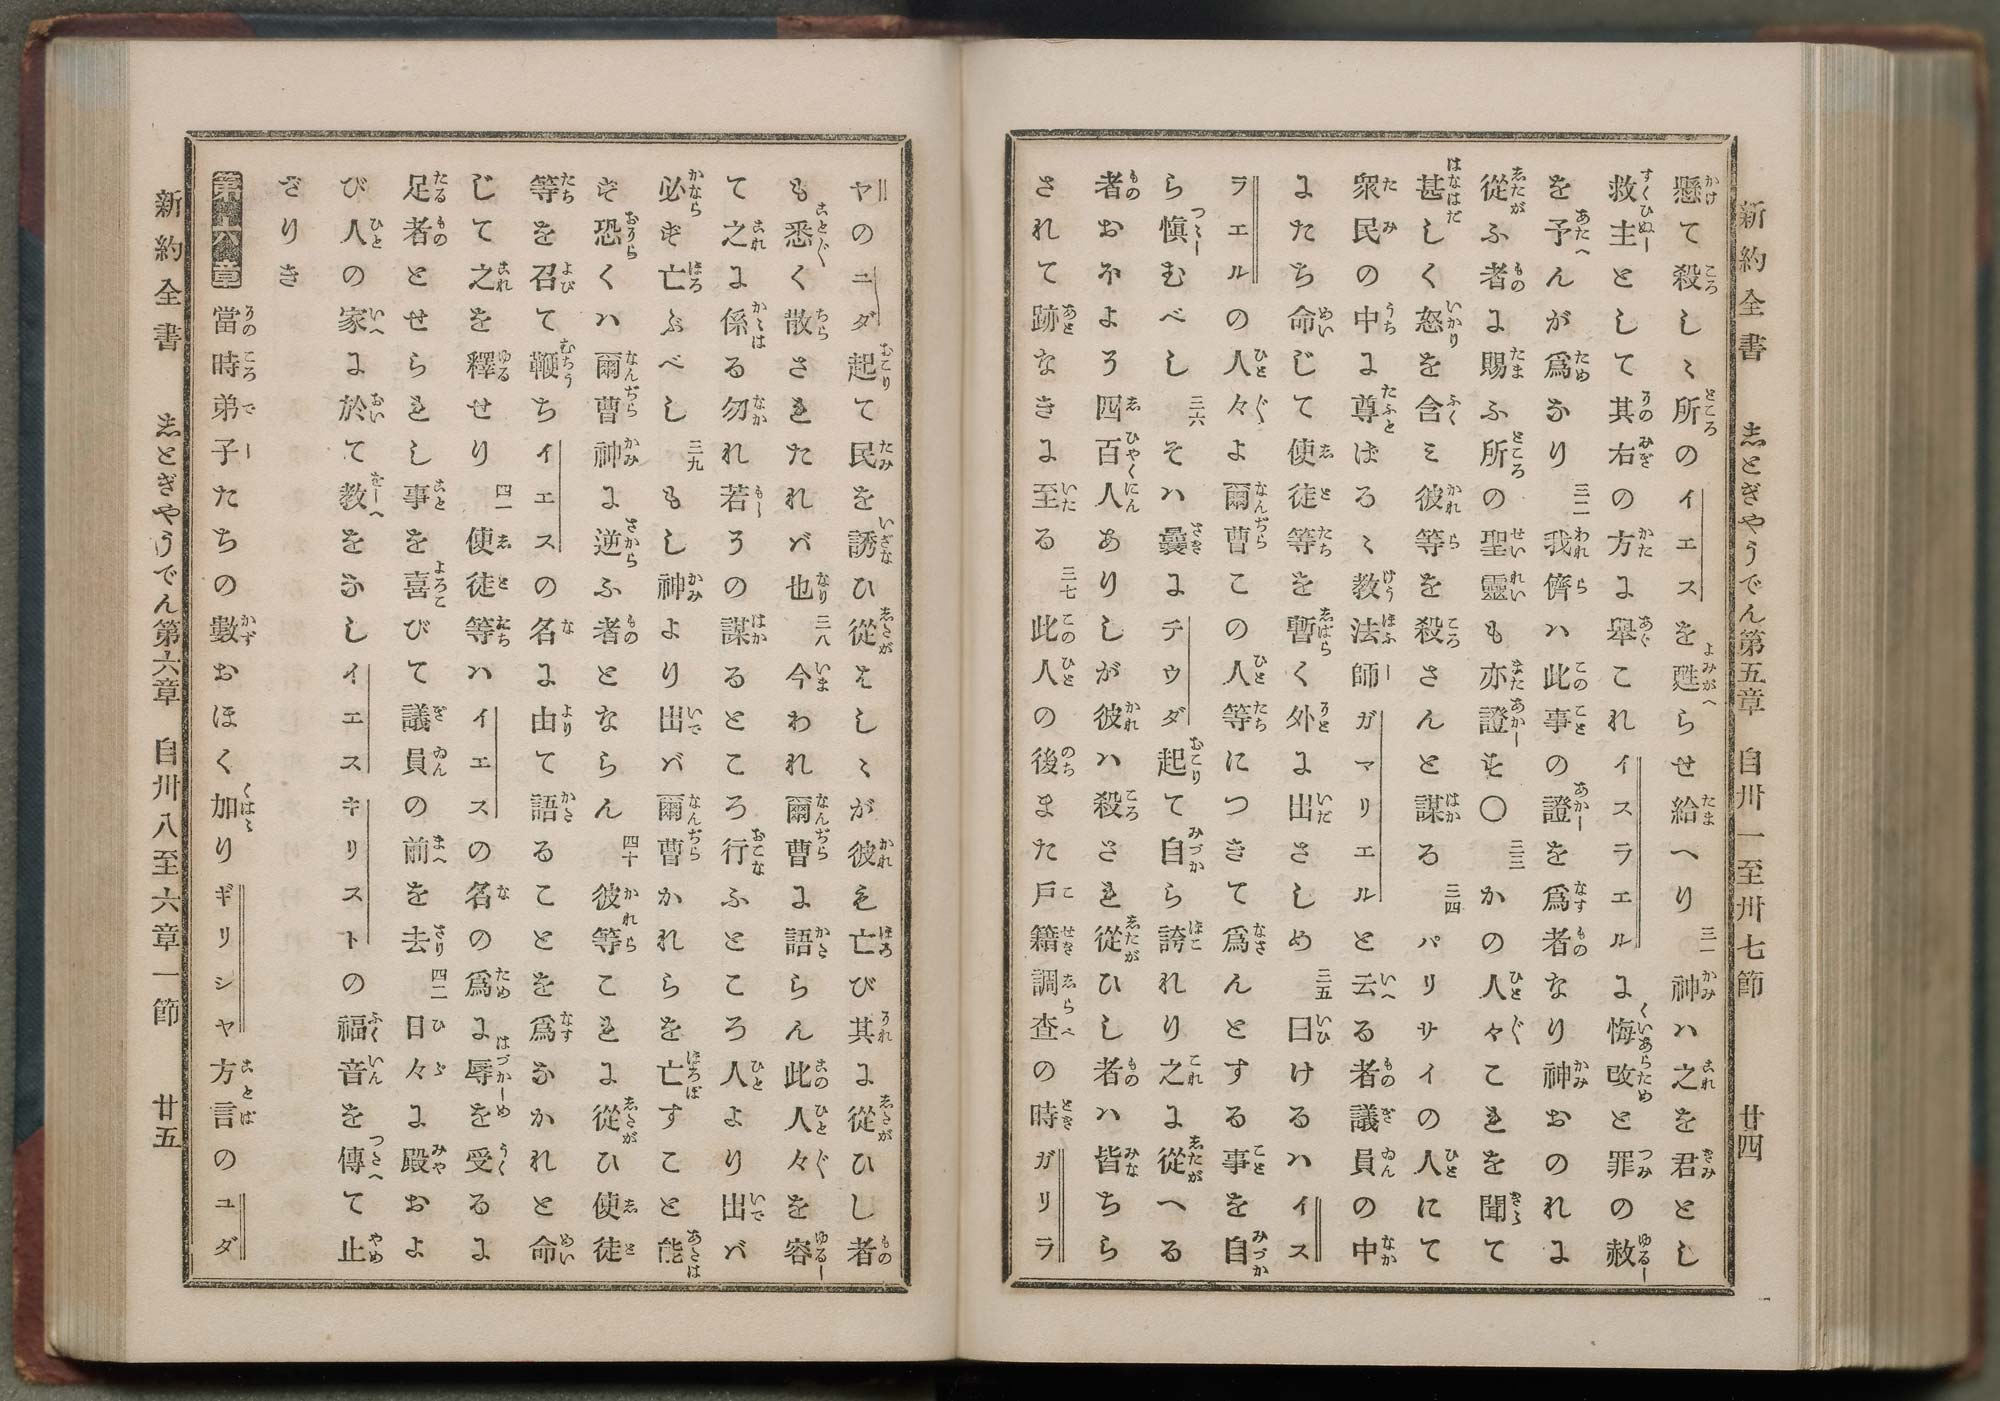 新約全書 志とぎやうでん第五章 自卅一至卅七節 廿四
懸て殺しゝ所のイエスを甦らせ給へり 三一 神ハ之を君とし
救主として其右の方に擧これイスラエルに悔改と罪の赦
を予んが爲なり 三二 我儕ハ此事の證を爲者なり神おのれに
從ふ者に賜ふ所の聖靈も亦證せり〇 三三 かの人々これを聞て
甚しく怒を含ミ彼等を殺さんと謀る 三四 パリサイの人にて
衆民の中に尊ばるゝ教法師ガマリエルと云る者議員の中
にたち命じて使徒等を暫く外に出さしめ 三五 曰けるハイス
ラエルの人々よ爾曹この人等につきて爲んとする事を自
ら愼むべし 三六 そハ曩にチウダ起て自ら誇れり之に從へる
者おほよそ四百人ありしが彼ハ殺され從ひし者ハ皆ちら
されて跡なきに至る 三七 此人の後また戸籍調査の時ガリラ
ヤのユダ起て民を誘ひ從えしゝが彼も亡び其に從ひし者
も悉く散されたれバ也 三八 今われ爾曹に語らん此人々を容
て之に係る勿れ若その謀るところ行ふところ人より出バ
必ず亡ぶべし 三九 もし神より出バ爾曹かれらを亡すこと能
ず恐くハ爾曹神に逆ふ者とならん 四十 彼等これに從ひ使徒
等を召て鞭ちイエスの名に由て語ることを爲なかれと命
じて之を釋せり 四一 使徒等ハイエスの名の爲に辱を受るに
足者とせられし事を喜びて議員の前を去 四二 日々に殿およ
び人の家に於て教をなしイエスキリストの福音を傳て止
ざりき
第六章 當時弟子たちの數おほく加りギリシヤ方言のユダ
新約全書 志とぎやうでん第六章 自卅八至六章一節 廿五